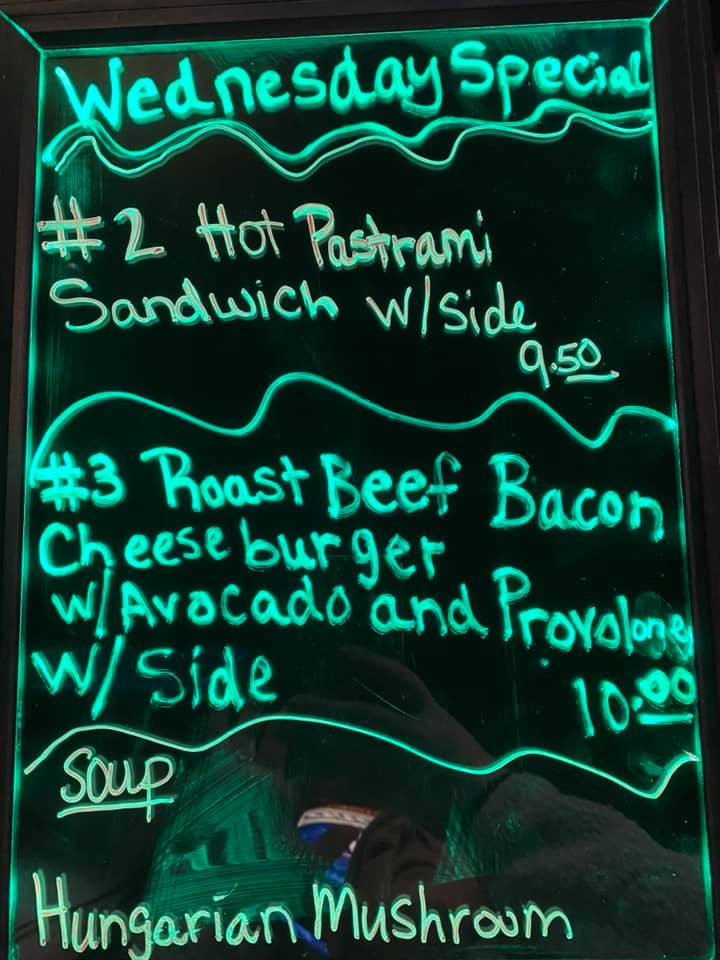 Wednesday Special
#2 Hot Pastrami
Sandwich w/side
9.50
#3 Roast Beef Bacon
Cheeseburger
w/Avocado and Provolone
w/ Side
10.00
Soup
Hungarian Mushroom